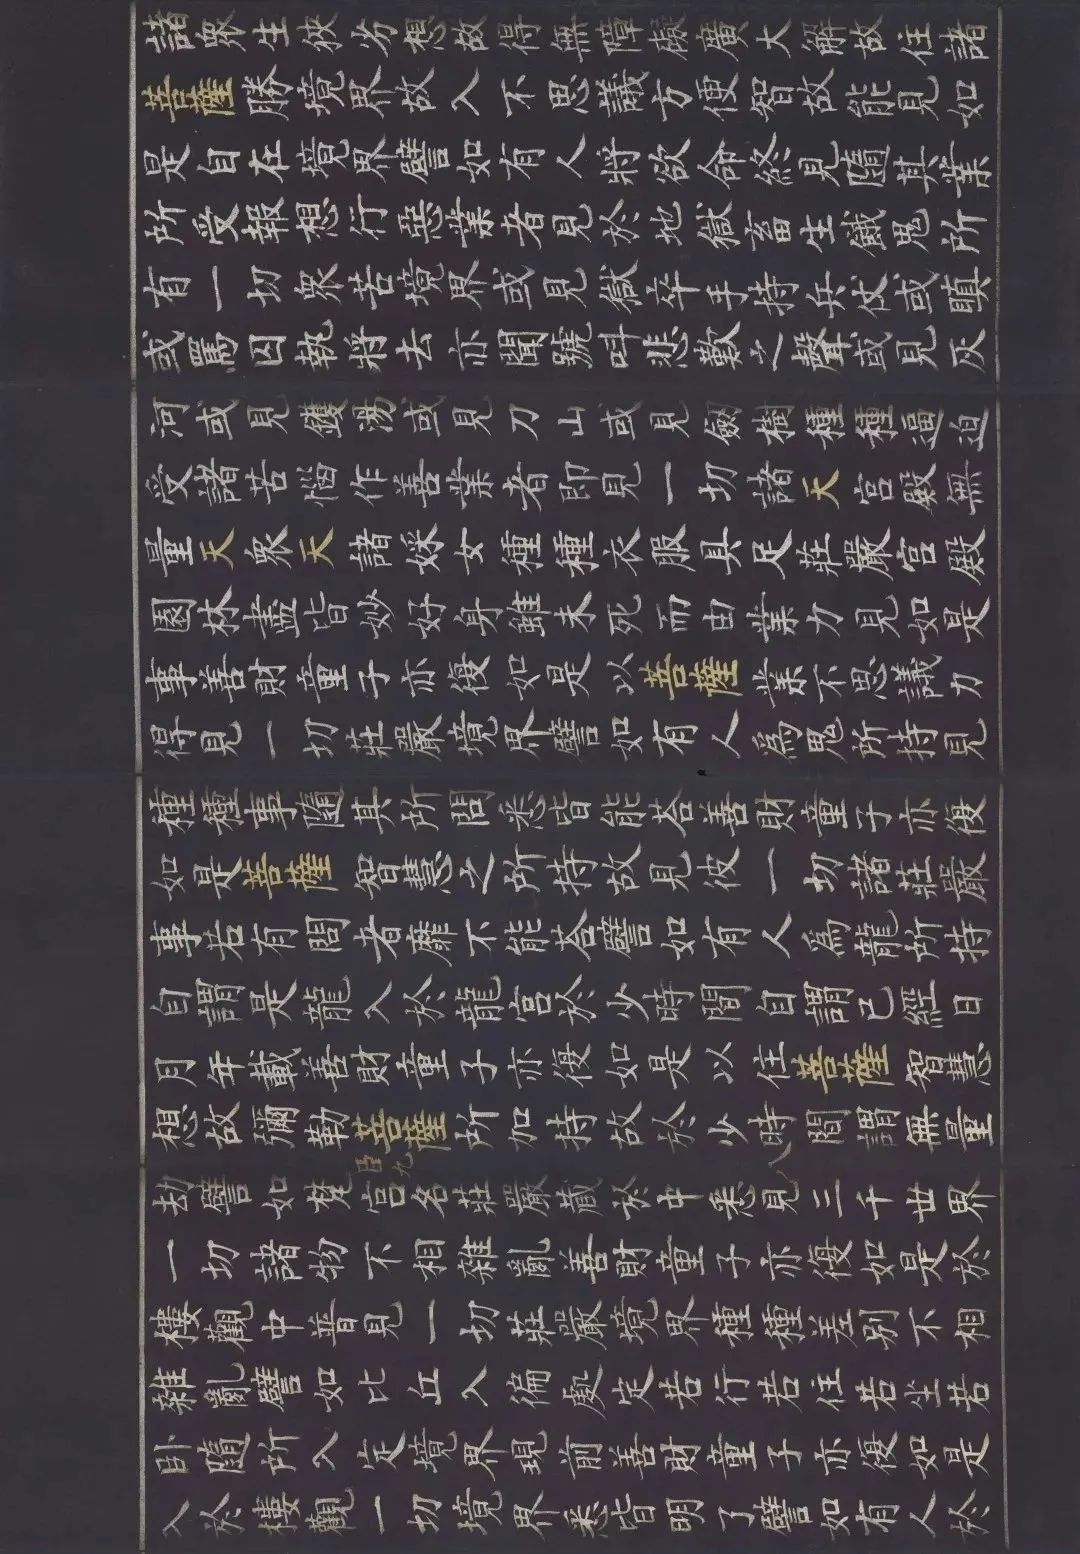 諸眾生狹劣想故得無障礙廣大解故住諸
菩薩勝境界故入不思議方便智故能見如
是自在境界譬如有人將欲命終見隨其業
所受報想行惡業者見於地獄畜生餓鬼所
有一切眾苦境界或見獄卒手持兵仗或瞋
或罵囚執將去亦聞號叫悲歎之聲或見灰
河或見鑊湯或見刀山或見劒樹種種逼迫
受諸苦惱作善業者即見一切諸天宮殿無
量天眾天諸婇女種種衣服具足莊嚴宮殿
園林盡皆妙好身雖未死而由業力見如是
事善財童子亦復如是以菩薩業不思議力
得見一切莊嚴境界譬如有人為鬼所持見
種種事隨其所問悉皆能荅善財童子亦復
如是菩薩智慧之所持故見彼一切諸莊嚴
事若有問者靡不能荅譬如有人為龍所持
自謂是龍入於龍宮於少時間自謂已經日
月年載善財童子亦復如是以住菩薩智慧
想故彌勒菩薩所加持故於少時間謂無量
劫譬如梵宮名莊嚴藏於中悉見三千世界
一切諸物不相雜亂善財童子亦復如是於
樓觀中普見一切莊嚴境界種種差別不相
雜亂譬如比丘入徧處定若行若住若坐若
臥隨所入定境界現前善財童子亦復如是
入於樓觀一切境界悉皆明了譬如有人於